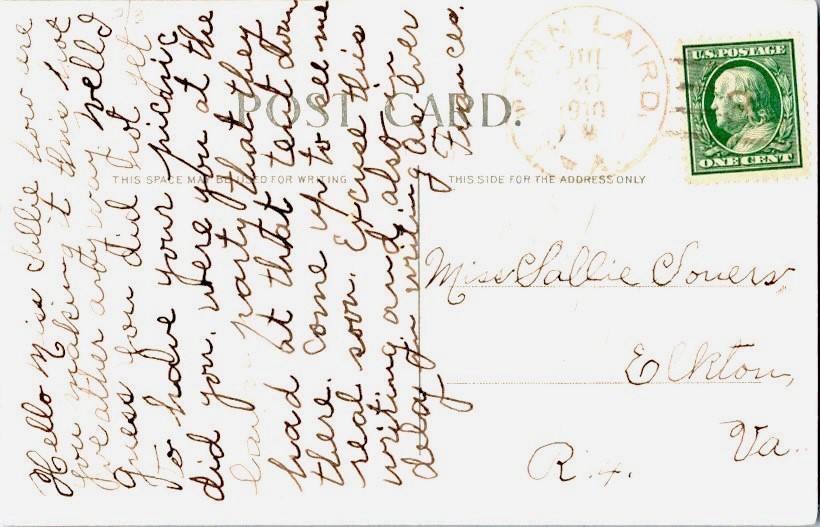 POST CARD.
THIS SPACE MAY BE USED FOR WRITING
THIS SIDE FOR THE ADDRESS ONLY
U.S. POSTAGE
ONE CENT
LAIRD
1910
Hello Miss Sallie how are
you making it this hot
weather any way. well I
guess you did not get
To have your picnic
did you. were you at the
lawn party that they
had at that tent down
there. Come up to see me
real soon. Excuse this
writing and also my
delay in writing as ever
Frances.
Miss Sallie Sowers
Elkton,
Va.
R. 4.